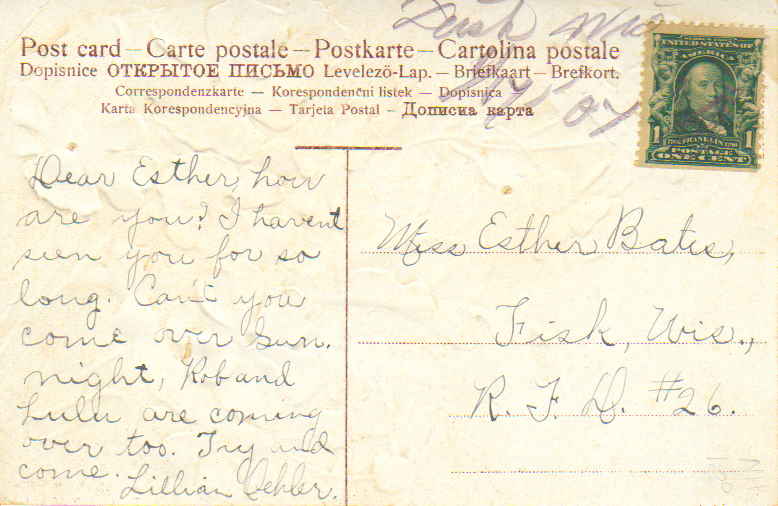 Post card – Carte postale – Postkarte – Cartolina postale
Dopisnice ОТКРЫТОЕ ПИСЬМО Levelező-Lap. – Briefkaart – Brefkort.
Correspondenzkarte – Korespondenčni listek – Dopisnica
Karta Korespondencyjna – Tarjeta Postal – Дописна карта
07
UNITED STATES OF
AMERICA
1 1
FRANKLIN
POSTAGE
ONE CENT
Dear Esther, how
are you? I havent
seen you for so
long. Can't you
come over Sun.
night, Rob and
Lulu are coming
over too. Try and
come.
Lillian Oehler.
Miss Esther Bates,
Fisk, Wis.,
R. F. D. #26.